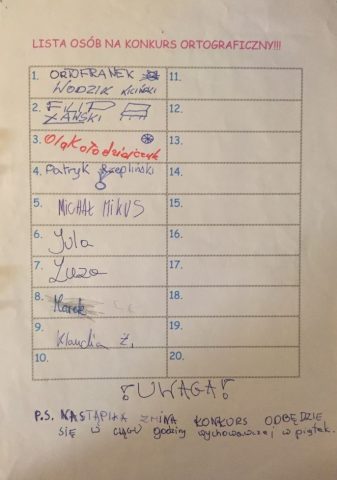 LISTA OSÓB NA KONKURS ORTOGRAFICZNY!!!
1. ORTOFRANEK
WODZIK KICIŃSKI
2. FILIP
ŻAŃSKI
3. Ola Kołodziejczyk
4. Patryk Rzepliński
5. MICHAŁ MIKUS
6. Jula
7. Zuza
8. Marek
9. Klaudia Ż.
10.
11.
12.
13.
14.
15.
16.
17.
18.
19.
20.
! UWAGA !
P.S. NASTĄPIŁA ZMINA KONKURS ODBĘDZIE
SIĘ W CIĄGU godziny wychowawczej w piątek.